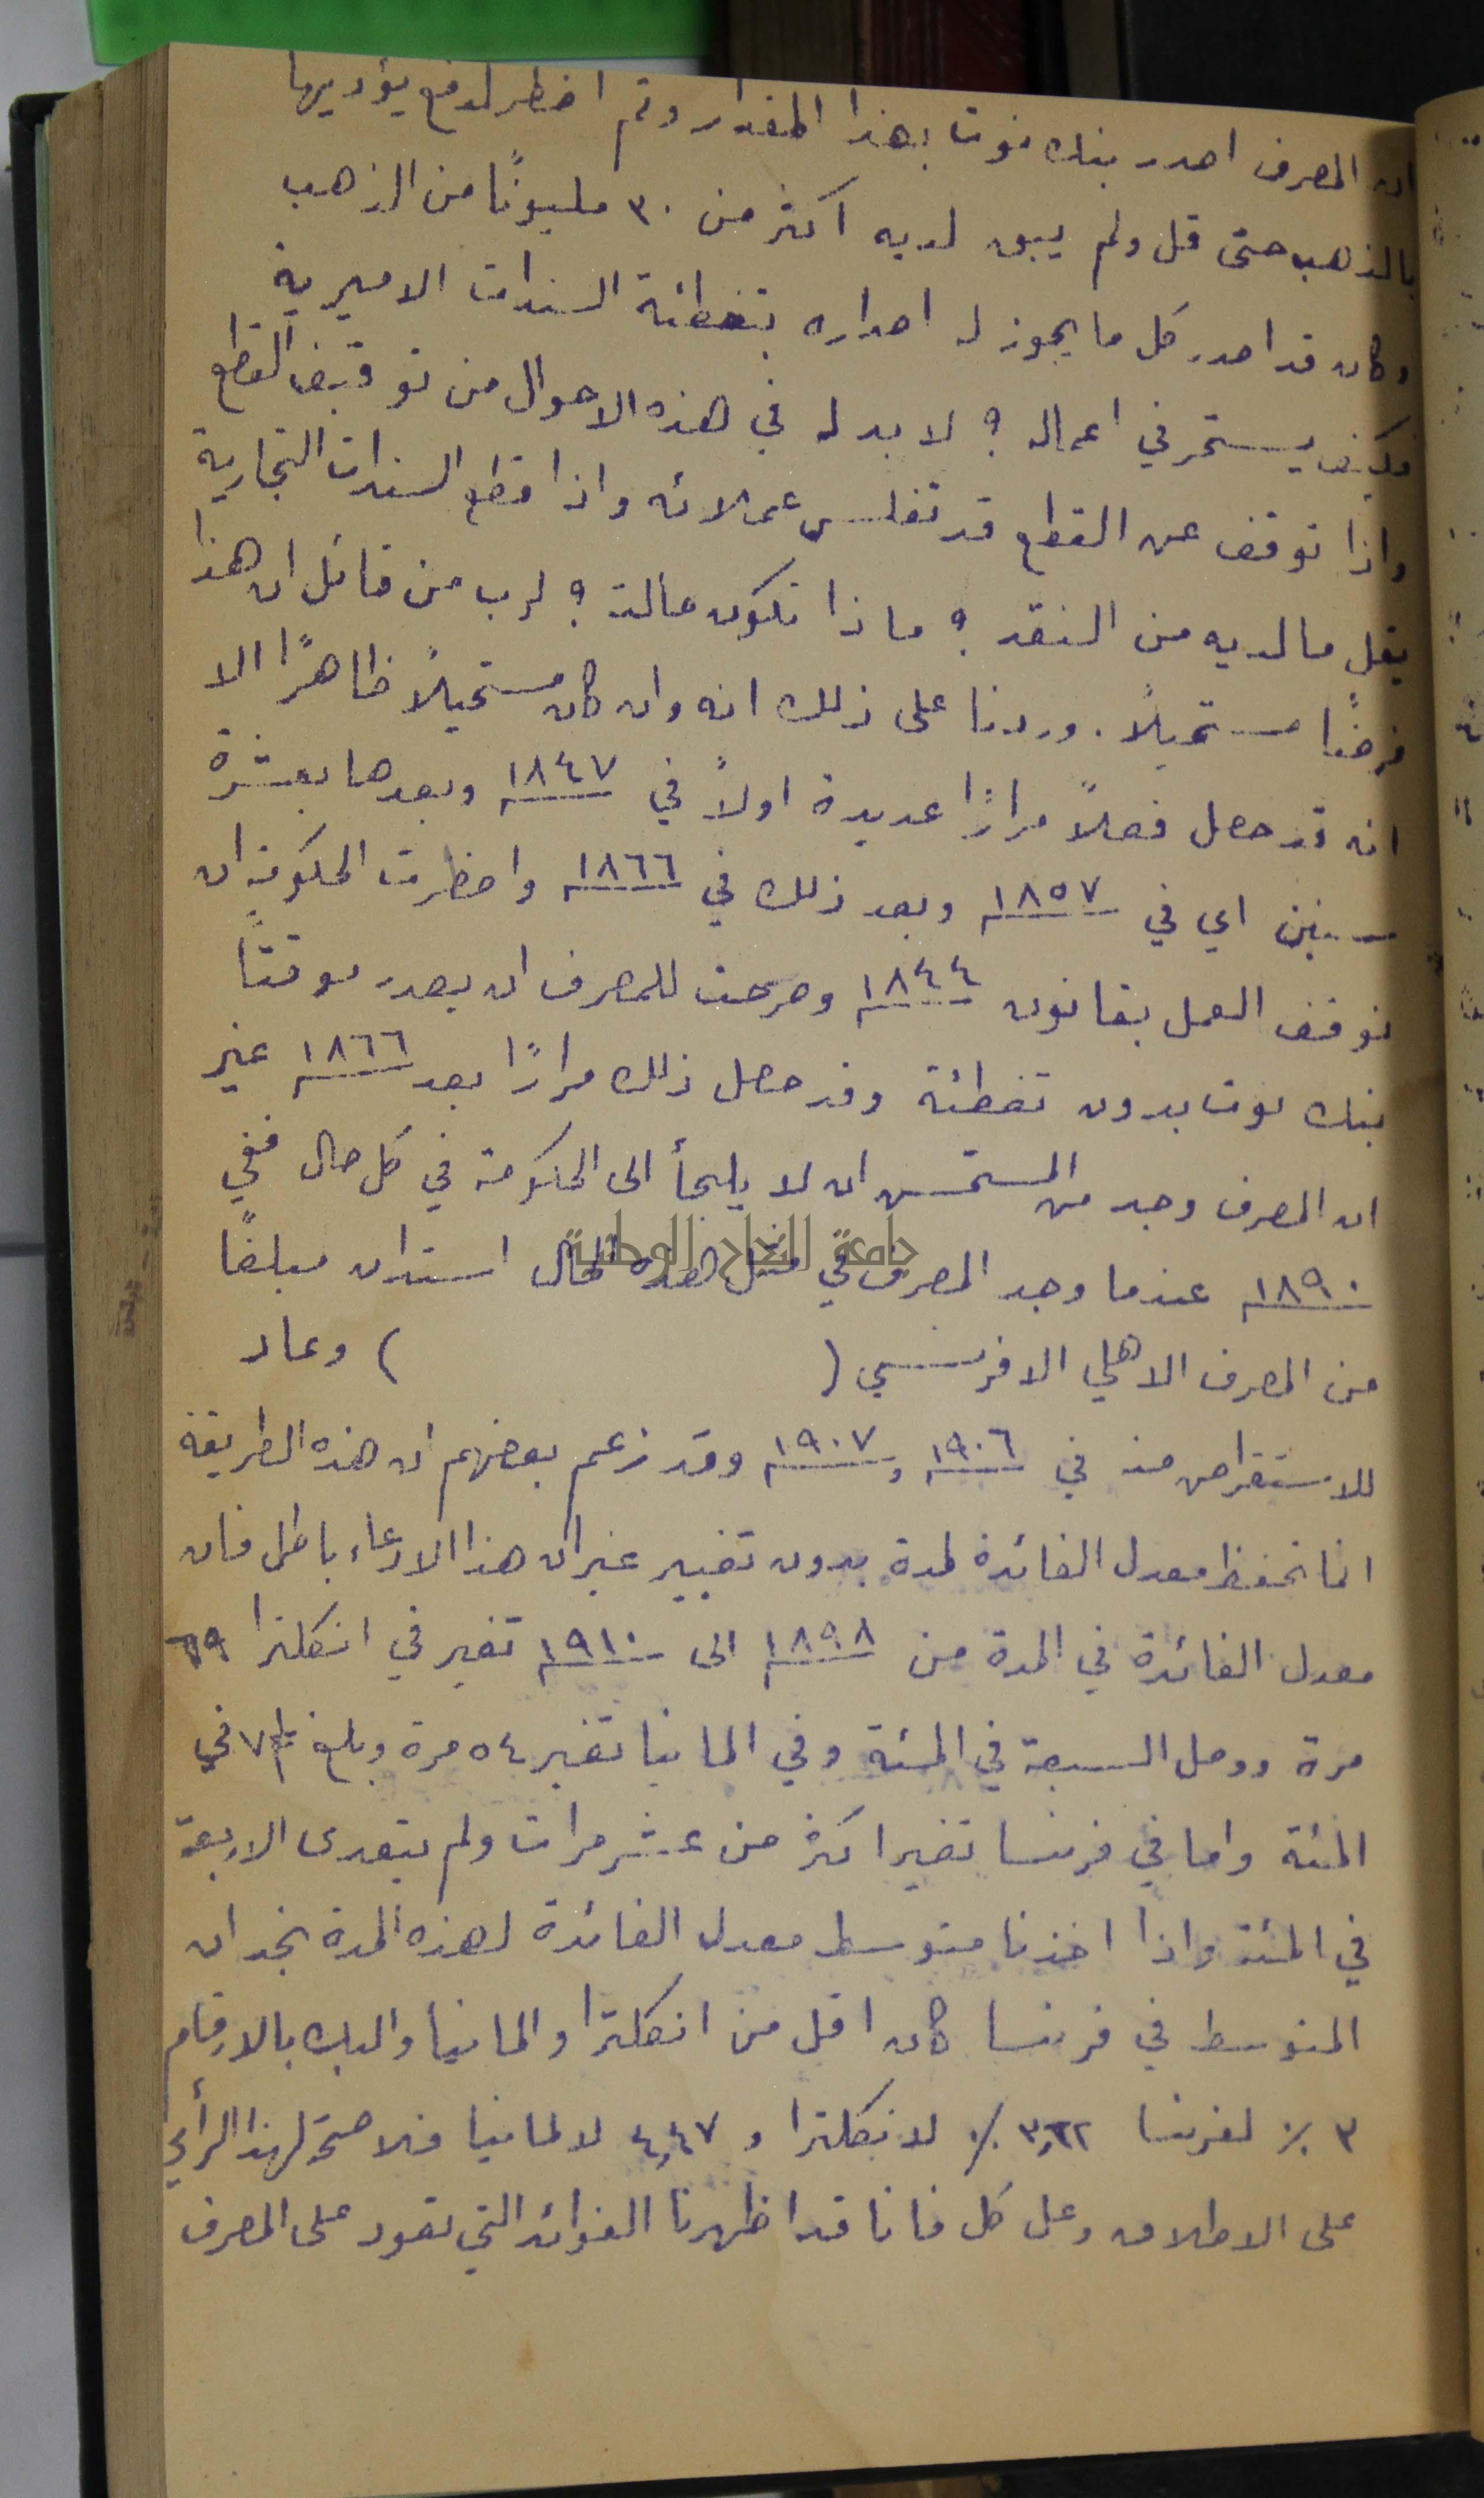 ان المصرف اصدر بنك نوت بهذا المقدار وتم اضطر لدفع يؤديها
بالذهب حتى قل ولم يبق لديه اكثر من ٣٠ مليونًا من الذهب
وكان قد اصدر كل ما يجوز له اصداره بتغطائة السندات الاميرية
فكيف يستمر في اعماله ؟ لا بد له في هذه الاحوال من توقيف القطع
واذا توقف عن القطع قد تفلس عملائه واذا قطع السندات التجارية
يقل ما لديه من النقد ؟ ماذا تكون حالته ؟ لرب من قائل ان هذا
فرضًا مستحيلًا . وردنا على ذلك انه وان كان مستحيلًا ظاهرًا الا
انه قد حصل فعلًا مرارًا عديدة اولًا في ١٨٤٧ وبعدها بعشرة
سنين اي في ١٨٥٧ وبعد ذلك في ١٨٦٦ واضطرت الحكومة ان
توقف العمل بقانون ١٨٤٤ وصرحت للمصرف ان يصدر موقتًا
بنك نوت بدون تغطئة وقد حصل ذلك مرارًا بعد ١٨٦٦ غير
ان المصرف وجد من المستحسن ان لا يلجأ الى الحكومة في كل حال ففي
جامعة النجاح الوطنية
١٨٩٠ عندما وجد المصرف في مثل هذه الحال استدان مبلغًا
من المصرف الاهلي الافرنسي ( ) وعاد
للاستقراض منه في ١٩٠٦ و ١٩٠٧ وقد زعم بعضهم ان هذه الطريقة
انما تحفظ معدل الفائدة لمدة بدون تغيير غير ان هذا الادعاء باطل فان
معدل الفائدة في المدة من ١٨٩٨ الى ١٩١٠ تغير في انكلترا ٦٩
مرة ووصل السبعة في المئة وفي المانيا تغير ٥٤ مرة وبلغ ٧ في
المئة واما في فرنسا تغير اكثر من عشر مرات ولم يتعدى الاربعة
في المئة واذا اخذنا متوسط معدل الفائدة لهذه المدة نجد ان
المتوسط في فرنسا كان اقل من انكلترا والمانيا واليك بالارقام
٣ ٪ لفرنسا ٣,٦٢ ٪ لانكلترا و ٤,٤٧ لالمانيا فلا صحة لهذا الرأي
على الاطلاق وعلى كل فانا قد اظهرنا الفوائد التي تعود على المصرف